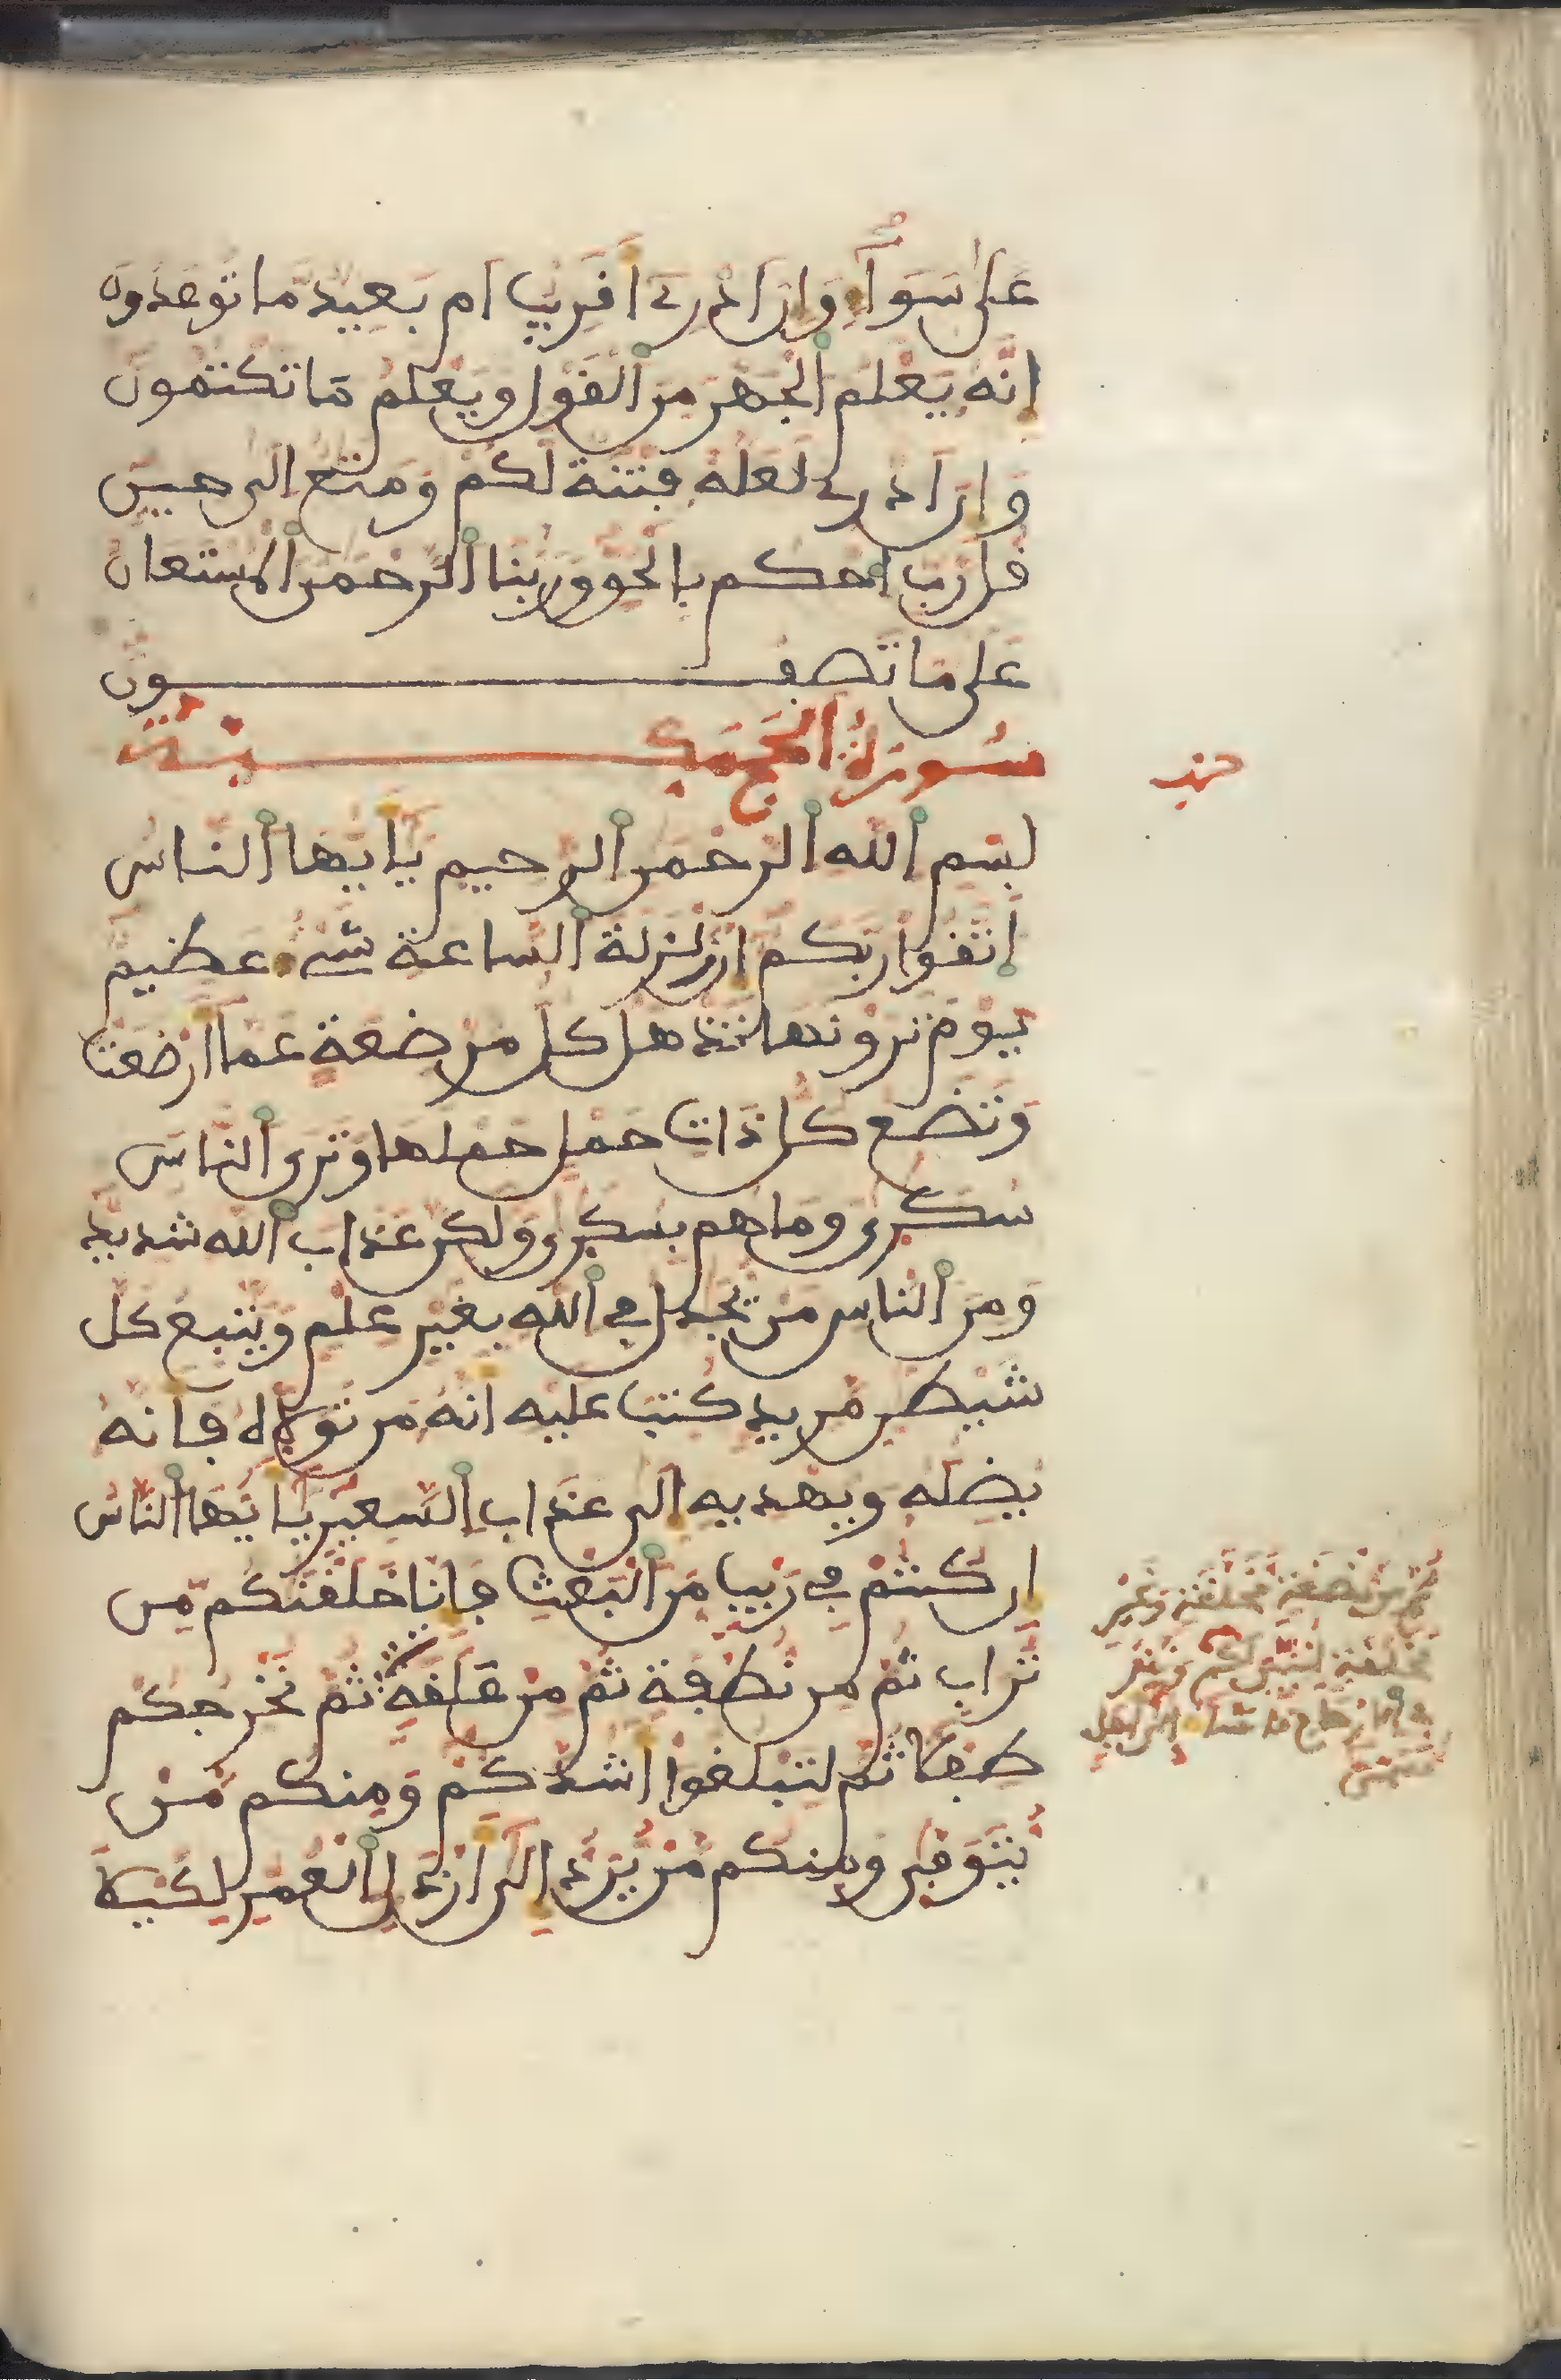 على سوآء وان ادرى اقريب ام بعيد ما توعدون
انه يعلم الجهر من القول ويعلم ما تكتمون
وان ادرى لعله فتنة لكم ومتع الى حين
قل رب احكم بالحق وربنا الرحمن المستعان
على ما تصفون
سورة الحج مكية
حزب
بسم الله الرحمن الرحيم يأيها الناس
اتقوا ربكم ان زلزلة الساعة شىء عظيم
يوم ترونها تذهل كل مرضعة عما ارضعت
وتضع كل ذات حمل حملها وترى الناس
سكرى وما هم بسكرى ولكن عذاب الله شديد
ومن الناس من يجدل في الله بغير علم ويتبع كل
شيطن مريد كتب عليه انه من تولاه فانه
يضله ويهديه الى عذاب السعير يأيها الناس
ان كنتم في ريب من البعث فانا خلقنكم من
تراب ثم من نطفة ثم من علقة ثم نخرجكم
طفلا ثم لتبلغوا اشدكم ومنكم من
يتوفى ومنكم من يرد الى ارذل العمر لكيلا
ثم من مضغة مخلقة وغير
مخلقة لنبين لكم ونقر
في الارحام ما نشاء الى اجل
مسمى